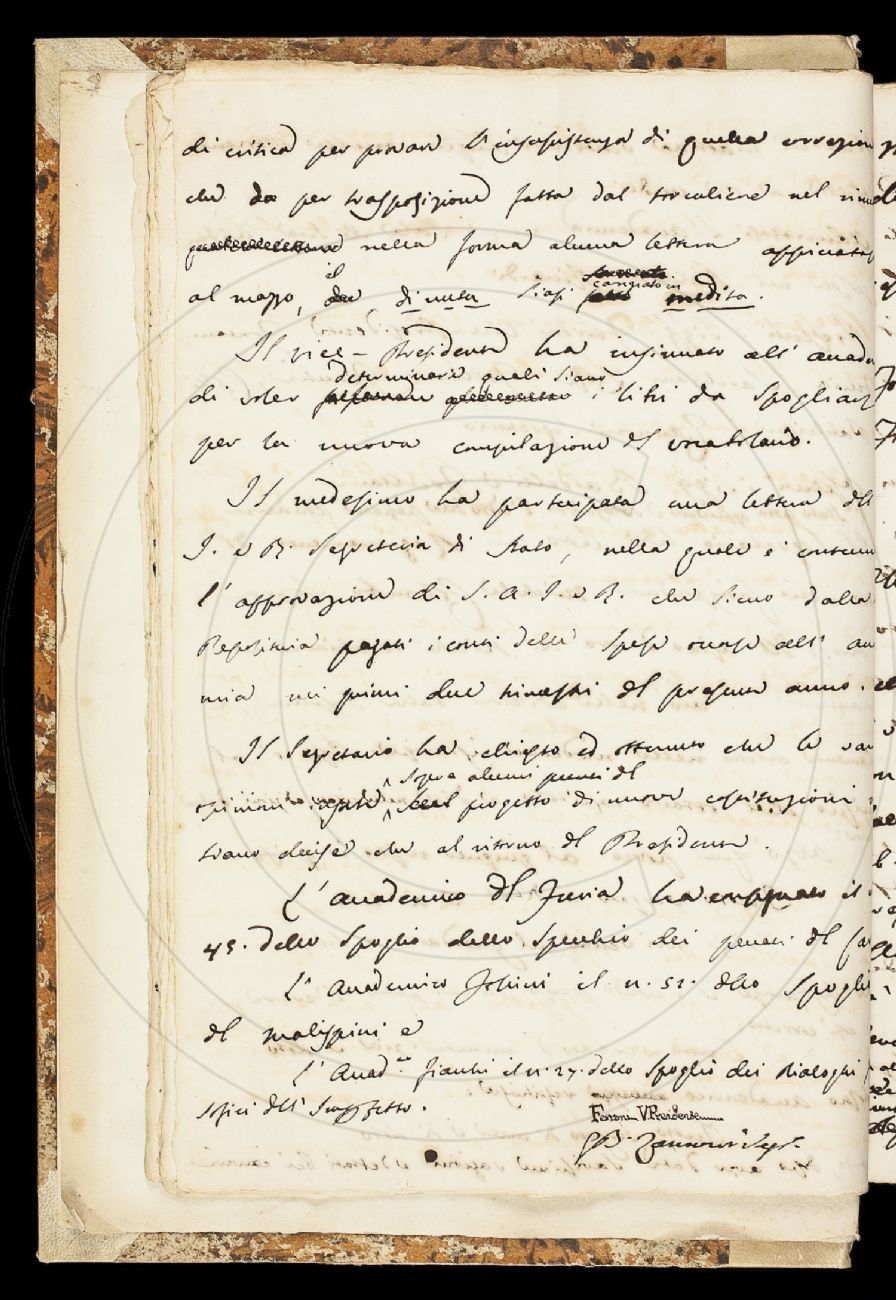 di critica per provare l'insussistenza di quella correzion
che per trasposizione fatta dal torcoliere nel
nella forma alcuna lettera appicciata
al mazzo, il di nuta siasi cangiato in medita.
Il vice-Presidente ha insinuato all' accade
di voler determinare quali siano i libri da spogliarsi
per la nuova compilazione del vocabolario.
Il medesimo ha partecipata una lettera dell
I. e R. Segreteria di Stato, nella quale è contenu
l'approvazione di S. A. I. e R. che sieno dalla
Depositeria pagati i conti delle spese occorse all' acc
mia nei primi due trimestri del presente anno.
Il Segretario ha chiesto ed ottenuto che le var
opinioni sopra alcuni punti del progetto di nuove costituzioni
trano decise che al ritorno del Presidente.
L'accademico Del Furia ha il
45. dello spoglio dello specchio dei peccati del
L'Accademico il n. 52. dello spoglio
del Malispini e
L'Accad.co Fiacchi il n. 27. dello spoglio dei Dialoghi
sofici dell'
Ferroni VPresidente
GB. Zannoni Segr.